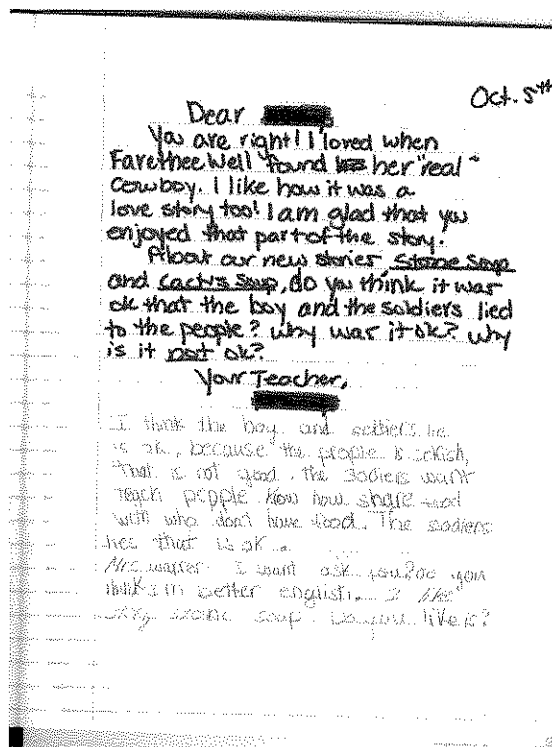 Oct. 5th
Dear
You are right! I loved when
Farethee Well found her "real"
Cowboy. I like how it was a
love story too! I am glad that you
enjoyed that part of the story.
About our new stories, Stone Soup
and Cactus Soup, do you think it was
ok that the boy and the soldiers lied
to the people? Why was it ok? Why
is it not ok?
Your Teacher,
I think the boy and soldiers lie
is ok, because the people is selfish,
that is not good. the sodiers want
teach people how share food
with who don't have food. The sodiers
lies that is ok.
I want ask you? Do you
thinks I'm better english. I like
story stone soup. Do you like it?